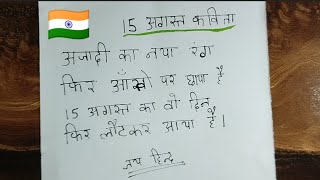 15 अगस्त कविता
अजादी का नया रंग
फिर आँखो पर छाया है
15 अगस्त का वो दिन
फिर लौटकर आया है।
जय हिन्द